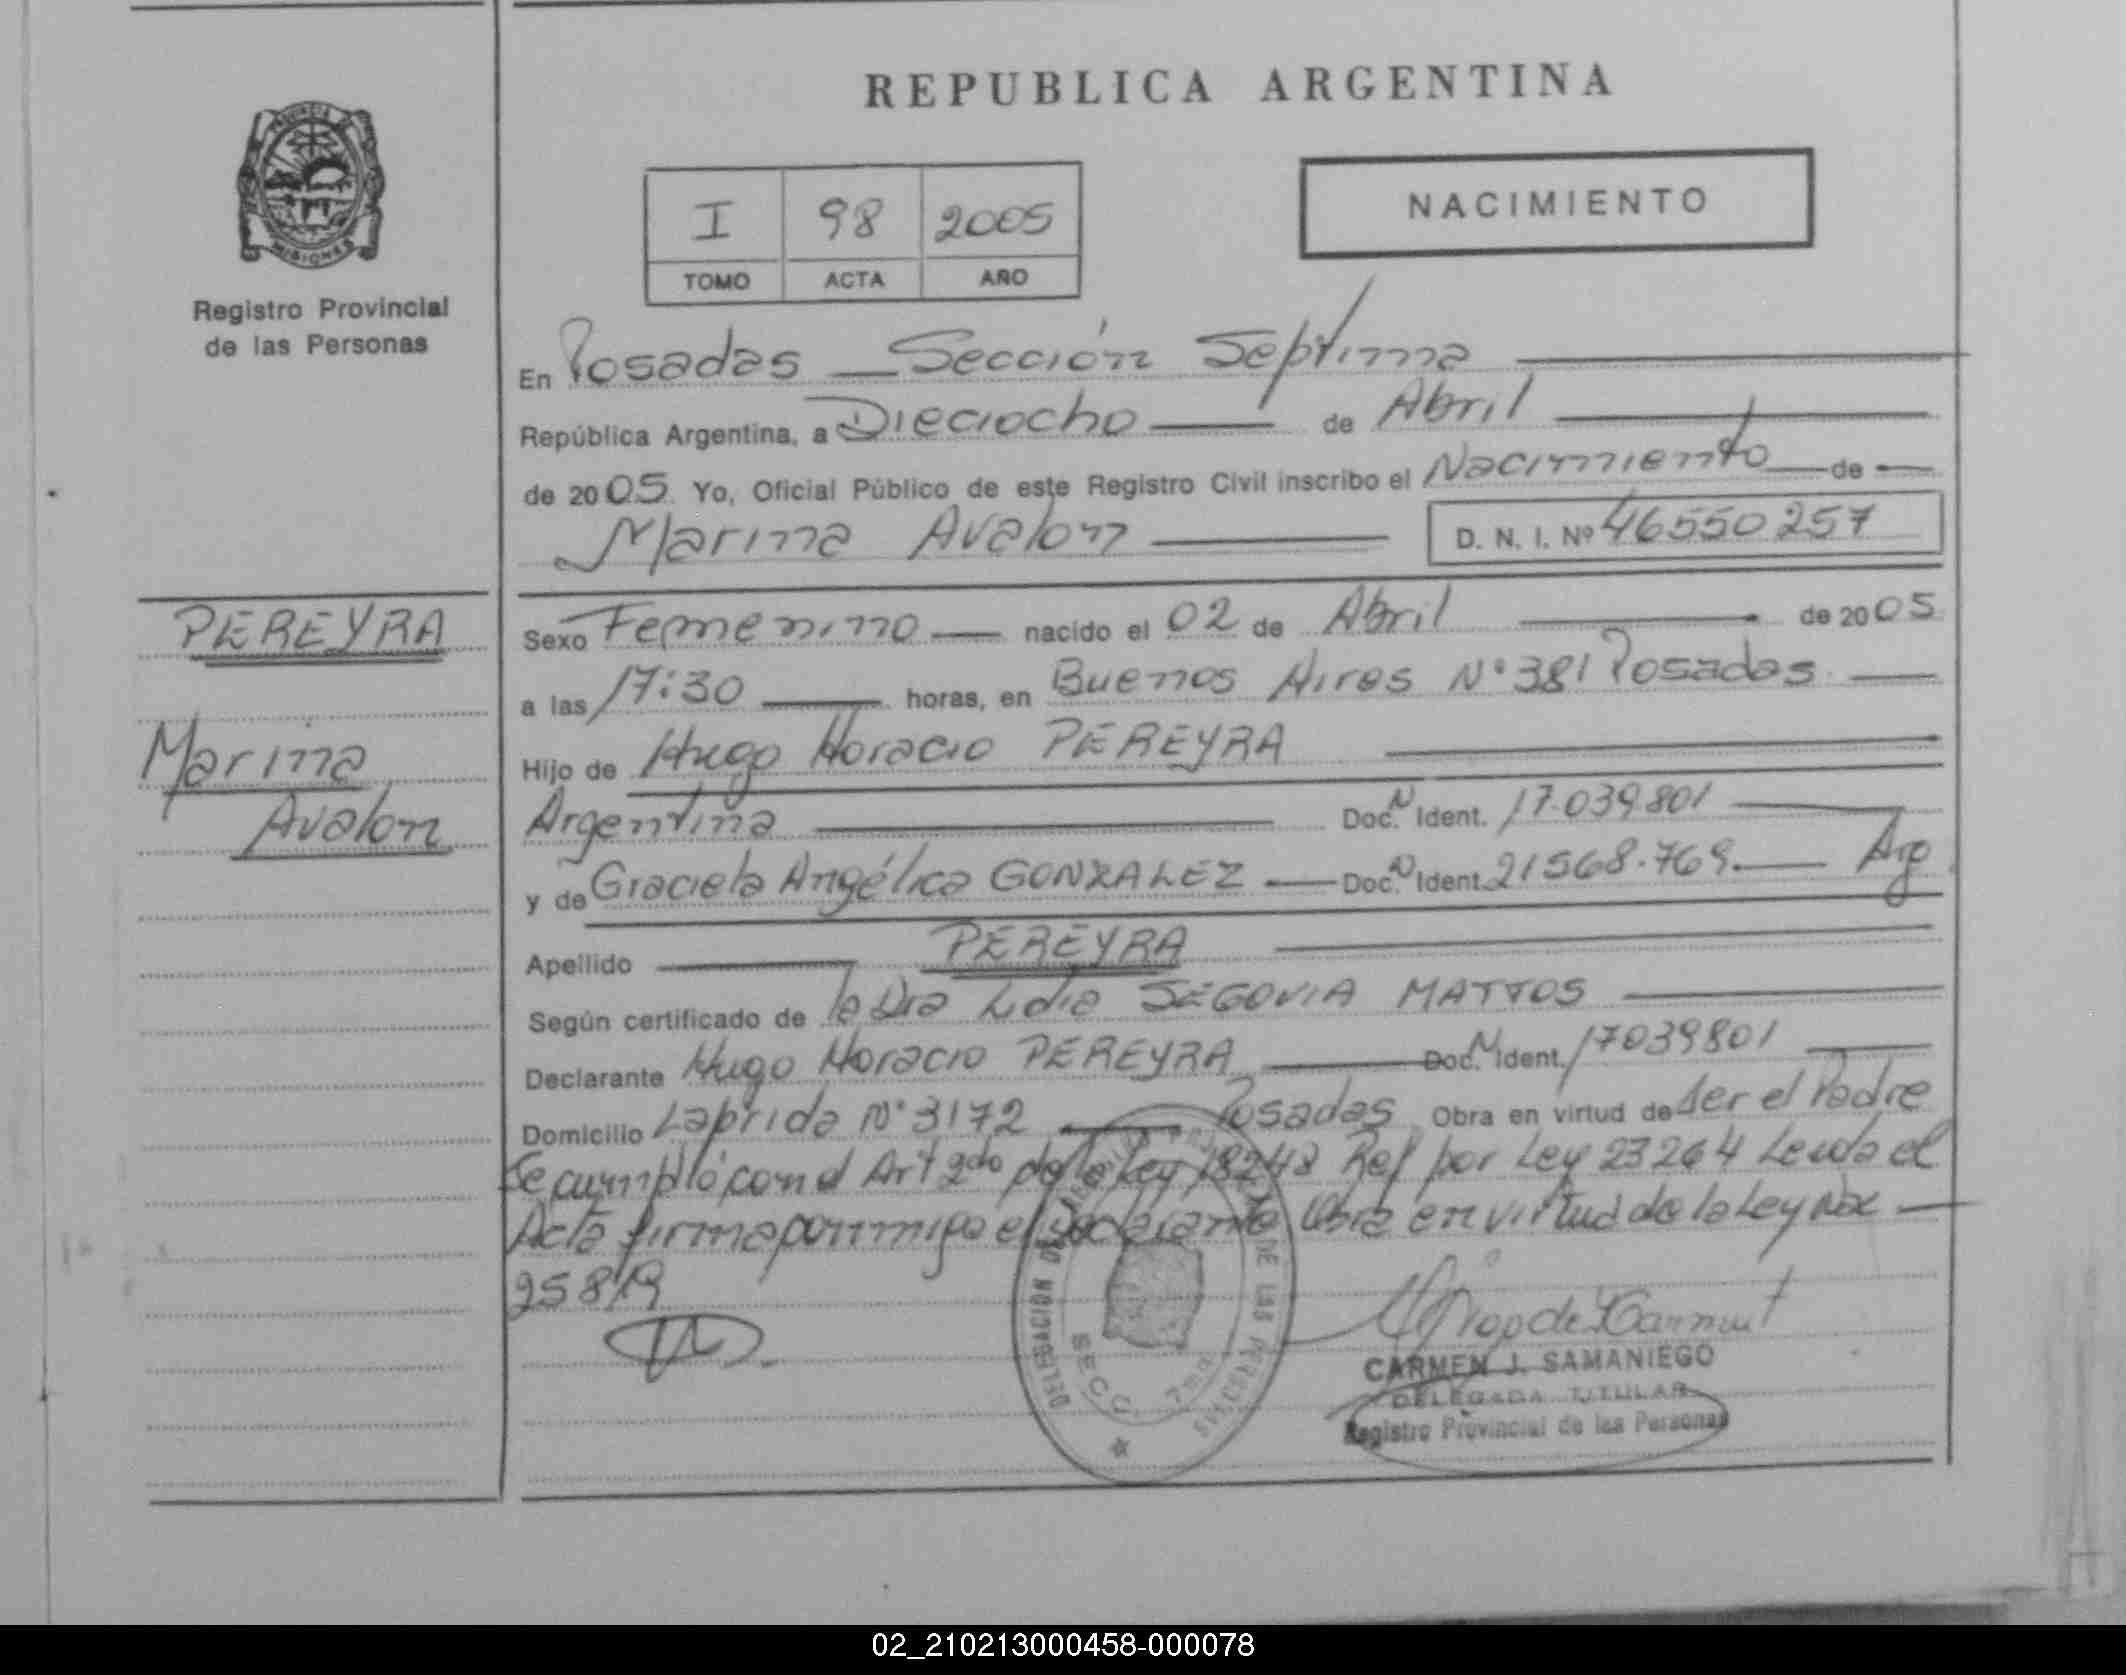 REPUBLICA ARGENTINA
PROVINCIA DE
MISIONES
Registro Provincial
de las Personas
I 98 2005
TOMO ACTA AÑO
NACIMIENTO
En Posadas — Sección Septima
República Argentina, a Dieciocho — de Abril
de 2005 Yo, Oficial Público de este Registro Civil inscribo el Nacimiento — de —
Marina Avalon — D. N. I. Nº 46550257
PEREYRA
Marina
Avalon
Sexo Femenino — nacido el 02 de Abril — de 2005
a las 17:30 — horas, en Buenos Aires Nº 381 Posadas —
Hijo de Hugo Horacio PEREYRA —
Argentina — Doc. N Ident. 17.039.801 —
y de Graciela Angélica GONZALEZ — Doc. N Ident. 21568.769. — Arg
Apellido — PEREYRA —
Según certificado de la Dra Lidia SEGOVIA MATTOS —
Declarante Hugo Horacio PEREYRA — Doc. N Ident. 17039801 —
Domicilio Laprida Nº 3172 — Posadas Obra en virtud de ser el Padre
Se cumplió con el Art 2do de la Ley 18248 Ref por Ley 23264 Leida el
Acta firma conmigo el declarante Obra en virtud de la Ley Nac —
25819
DELEGACION DE LAS PERSONAS
SECC. 7ma
CARMEN J. SAMANIEGO
DELEGADA TITULAR
Registro Provincial de las Personas
02_210213000458-000078